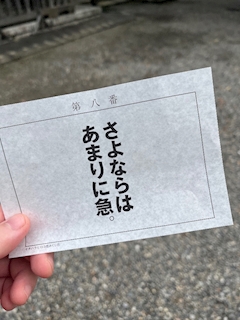 第八番
さよならは
あまりに急。